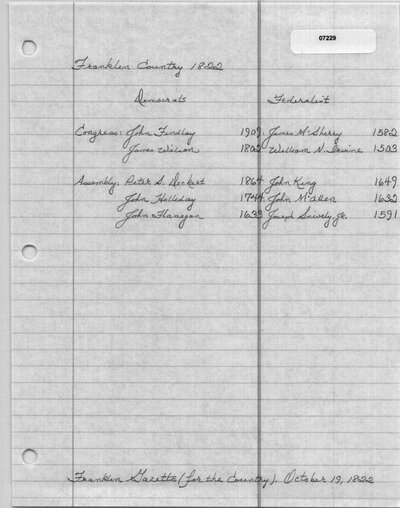 07229
Franklin Country 1822
Democrats Federalist
Congress: John Findlay 1909 James McSherry 1582
James Wilson 1802 William N. Irvine 1503
Assembly: Peter S. Deckert 1864 John King 1649
John Holliday 1744 John McAllen 1632
John Flanagan 1633 Joseph Snively Jr. 1591
Franklin Gazette (for the Country). October 19, 1822